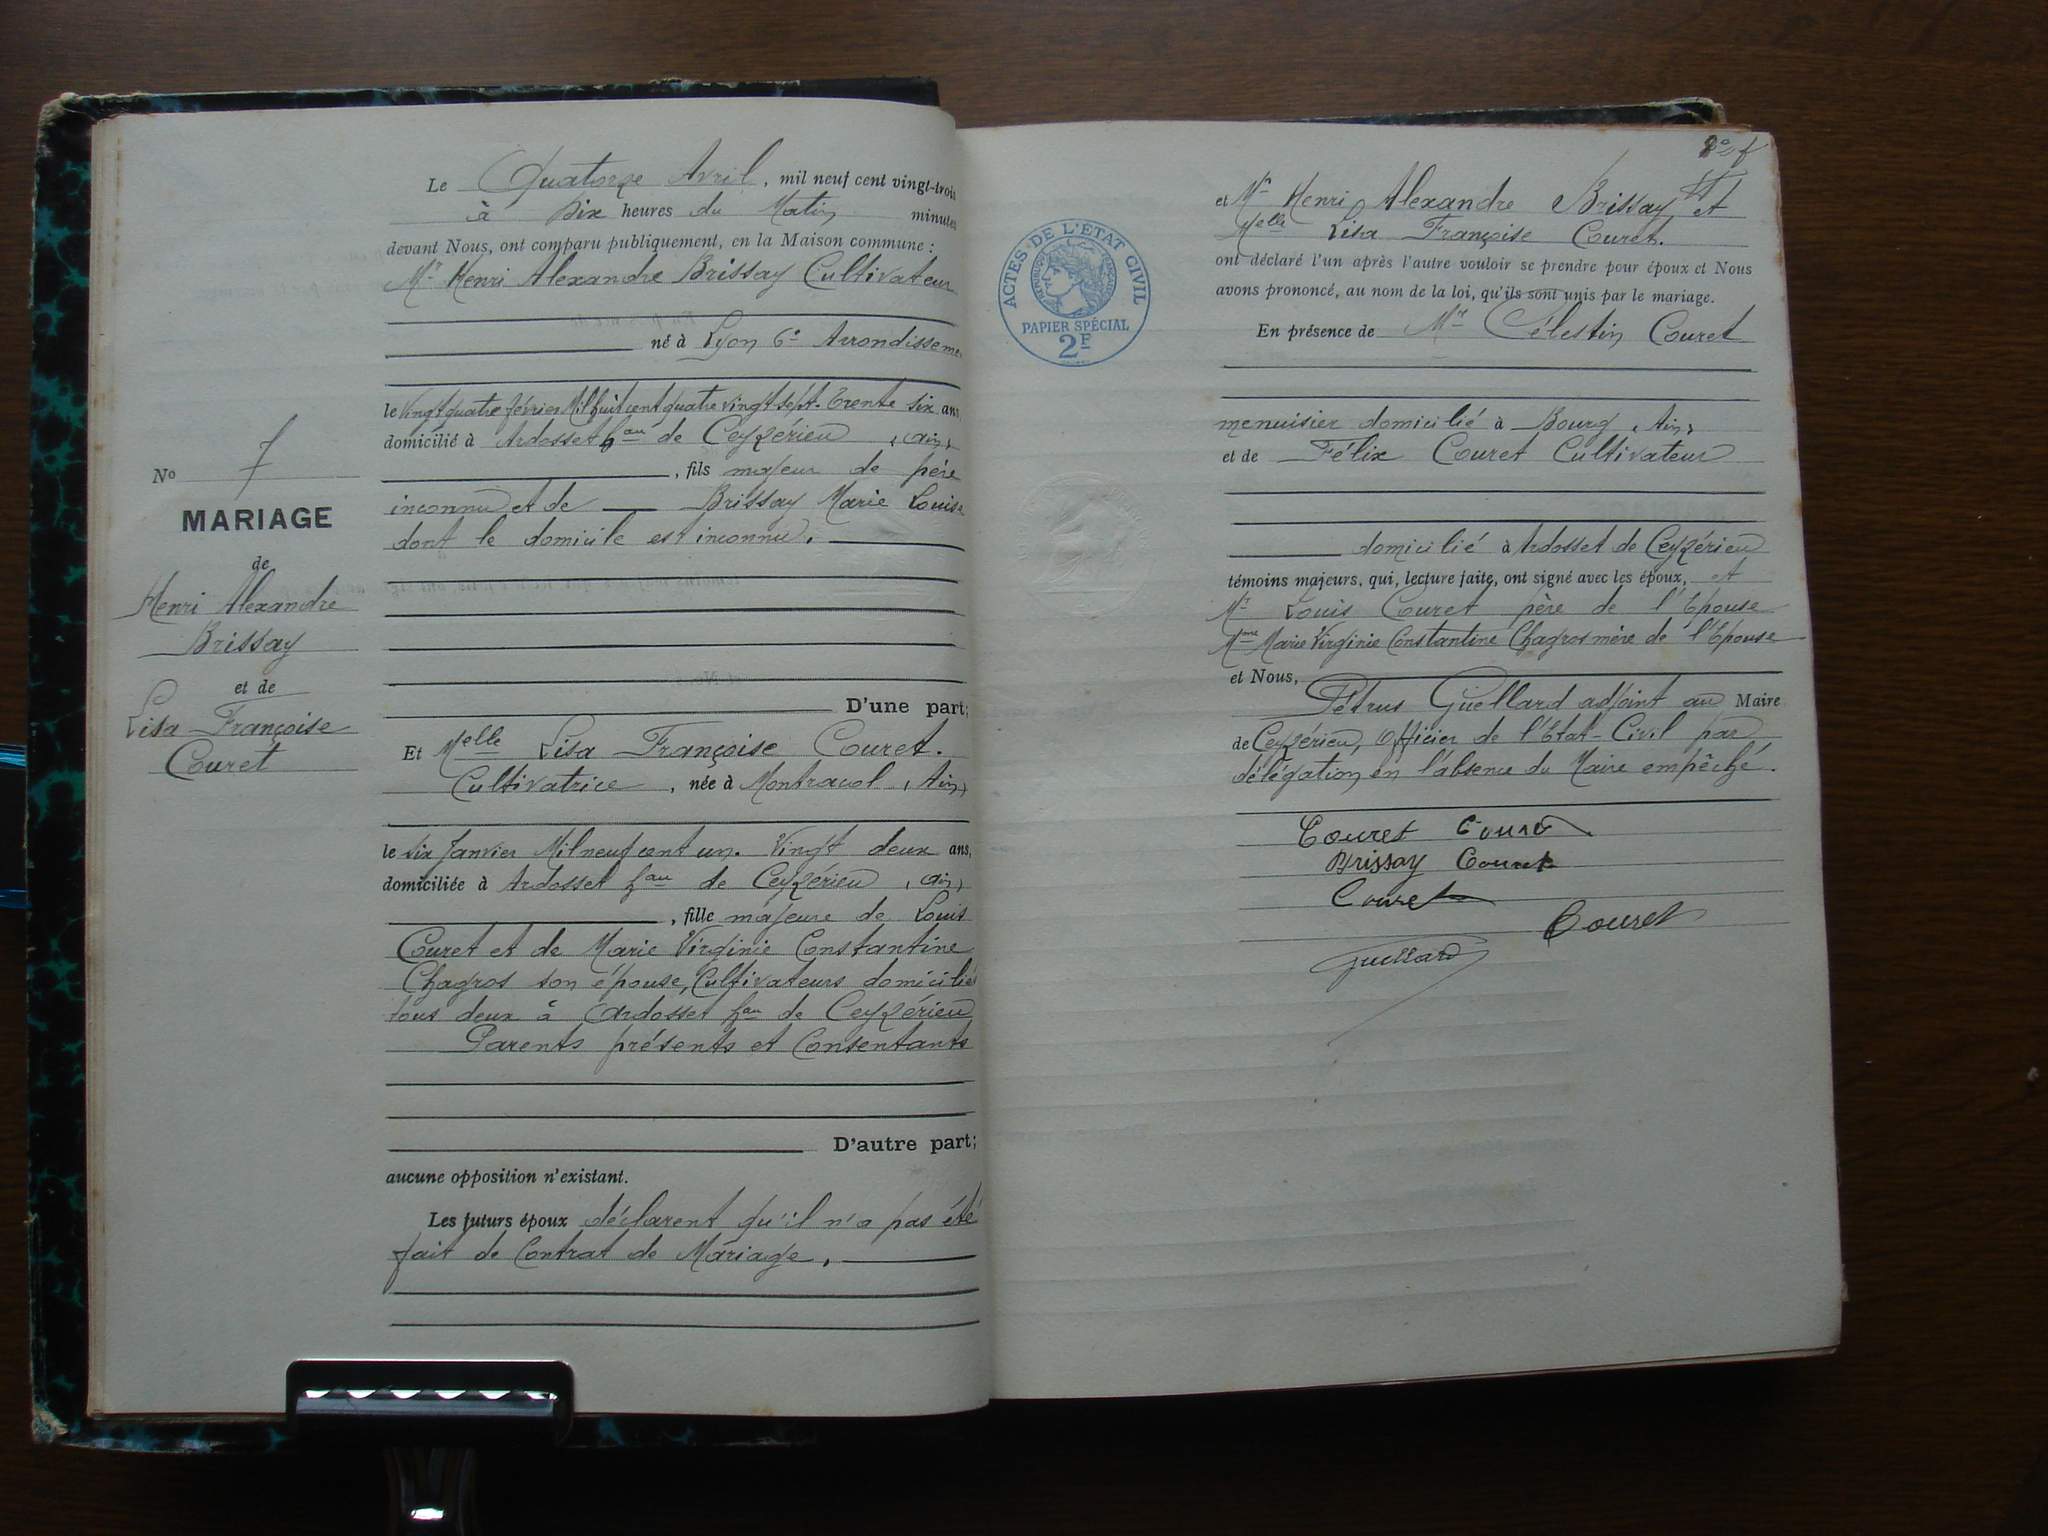 Le Quatorze Avril, mil neuf cent vingt-trois
à Dix heures du Matin minutes
devant Nous, ont comparu publiquement, en la Maison commune :
Mr Henri Alexandre Brissay Cultivateur
né à Lyon 6e Arrondisseme
le vingt quatre février Mil huit cent quatre vingt sept. Trente six ans
domicilié à Ardosset hau de Ceyzérieu (Ain)
, fils majeur de père
inconnu et de Brissay Marie Louise
dont le domicile est inconnu.
D'une part;
Et Melle Lisa Françoise Couret.
Cultivatrice, née à Montracol (Ain)
le six Janvier Mil neuf cent un. Vingt deux ans,
domiciliée à Ardosset hau de Ceyzérieu (Ain)
, fille majeure de Louis
Couret et de Marie Virginie Constantine
Chagros son épouse, Cultivateurs domiciliés
tous deux à Ardosset hau de Ceyzérieu
Parents présents et Consentants
D'autre part;
aucune opposition n'existant.
Les futurs époux déclarent qu'il n'a pas été
fait de Contrat de Mariage.
No 7
MARIAGE
de
Henri Alexandre
Brissay
et de
Lisa Françoise
Couret
ACTES DE L'ÉTAT CIVIL
RÉPUBLIQUE FRANÇAISE
PAPIER SPÉCIAL
2F
et Mr Henri Alexandre Brissay et
Melle Lisa Françoise Couret.
ont déclaré l'un après l'autre vouloir se prendre pour époux et Nous
avons prononcé, au nom de la loi, qu'ils sont unis par le mariage.
En présence de Mr Célestin Couret
menuisier domicilié à Bourg (Ain)
et de Félix Couret Cultivateur
domicilié à Ardosset de Ceyzérieu
témoins majeurs, qui, lecture faite, ont signé avec les époux, et
Mr Louis Couret père de l'Epouse
Mme Marie Virginie Constantine Chagros mère de l'Epouse
et Nous,
Pétrus Guellard adjoint au Maire
de Ceyzérieu, Officier de l'Etat-Civil par
délégation, en l'absence du Maire empêché.
Couret Couret
Brissay Couret
Couret
Couret
Guellard